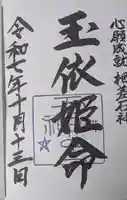 心願成就 相差石神
玉依姫命
令和七年十月十三日